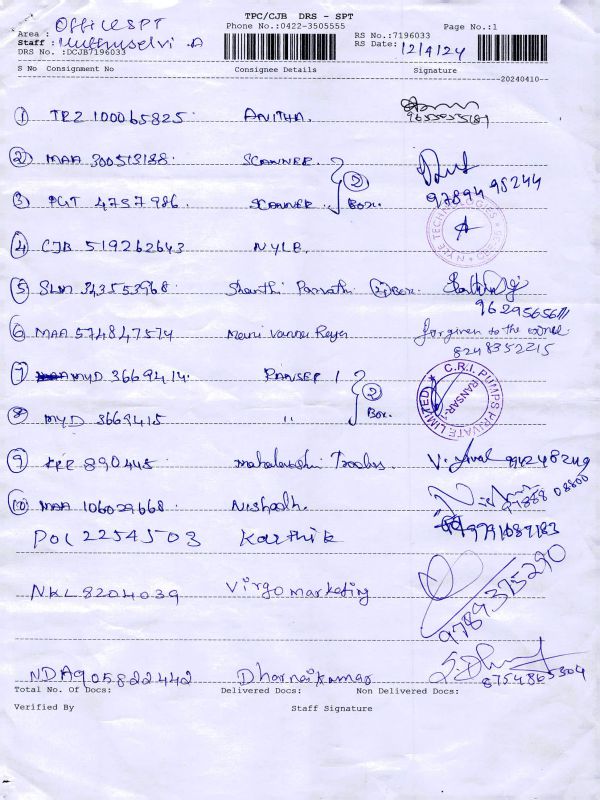 TPC/CJB DRS - SPT
Area : OFFICE SPT Phone No.:0422-3505555 Page No.:1
Staff : Muthuselvi .A RS No.:7196033
DRS No. :DCJB7196033 RS Date: 12/4/24
S No Consignment No Consignee Details Signature
--20240410--
① TRZ 100065825 ANITHA. 9655955189
② MAA 300513188 SCANNER. ② BOX. 97894 95244
③ PGT 4757986 SCANNER.
④ CJB 519262643 NYLE. NYLE TECHNOLOGIES
⑤ SLM 343553968 Shanthi Parvathi ② Box. 9629565611
⑥ MAA 574847574 Mani Vanna Raja for given to the 8248352215
⑦ MYD 3669414 RANSER 1 ② Box. C.R.I. PUMPS PRIVATE LIMITED RANSAR-1
⑧ MYD 3669415 "
⑨ 890445 Mahalakshmi Traders. 9942248249
⑩ MAA 106029668 Nishaodh. 97888 08800
POL 2254503 Karthik 9791087183
NKL8204039 Virgo marketing 9789375290
NDA905822442 Dharnaikumar 8754865304
Total No. Of Docs: Delivered Docs: Non Delivered Docs:
Verified By Staff Signature